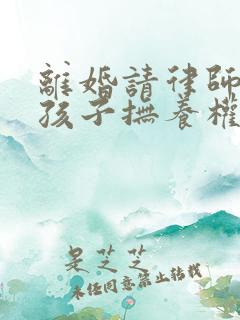 離婚請律師
孩子撫養權
是芝芝
未經同意禁止轉載